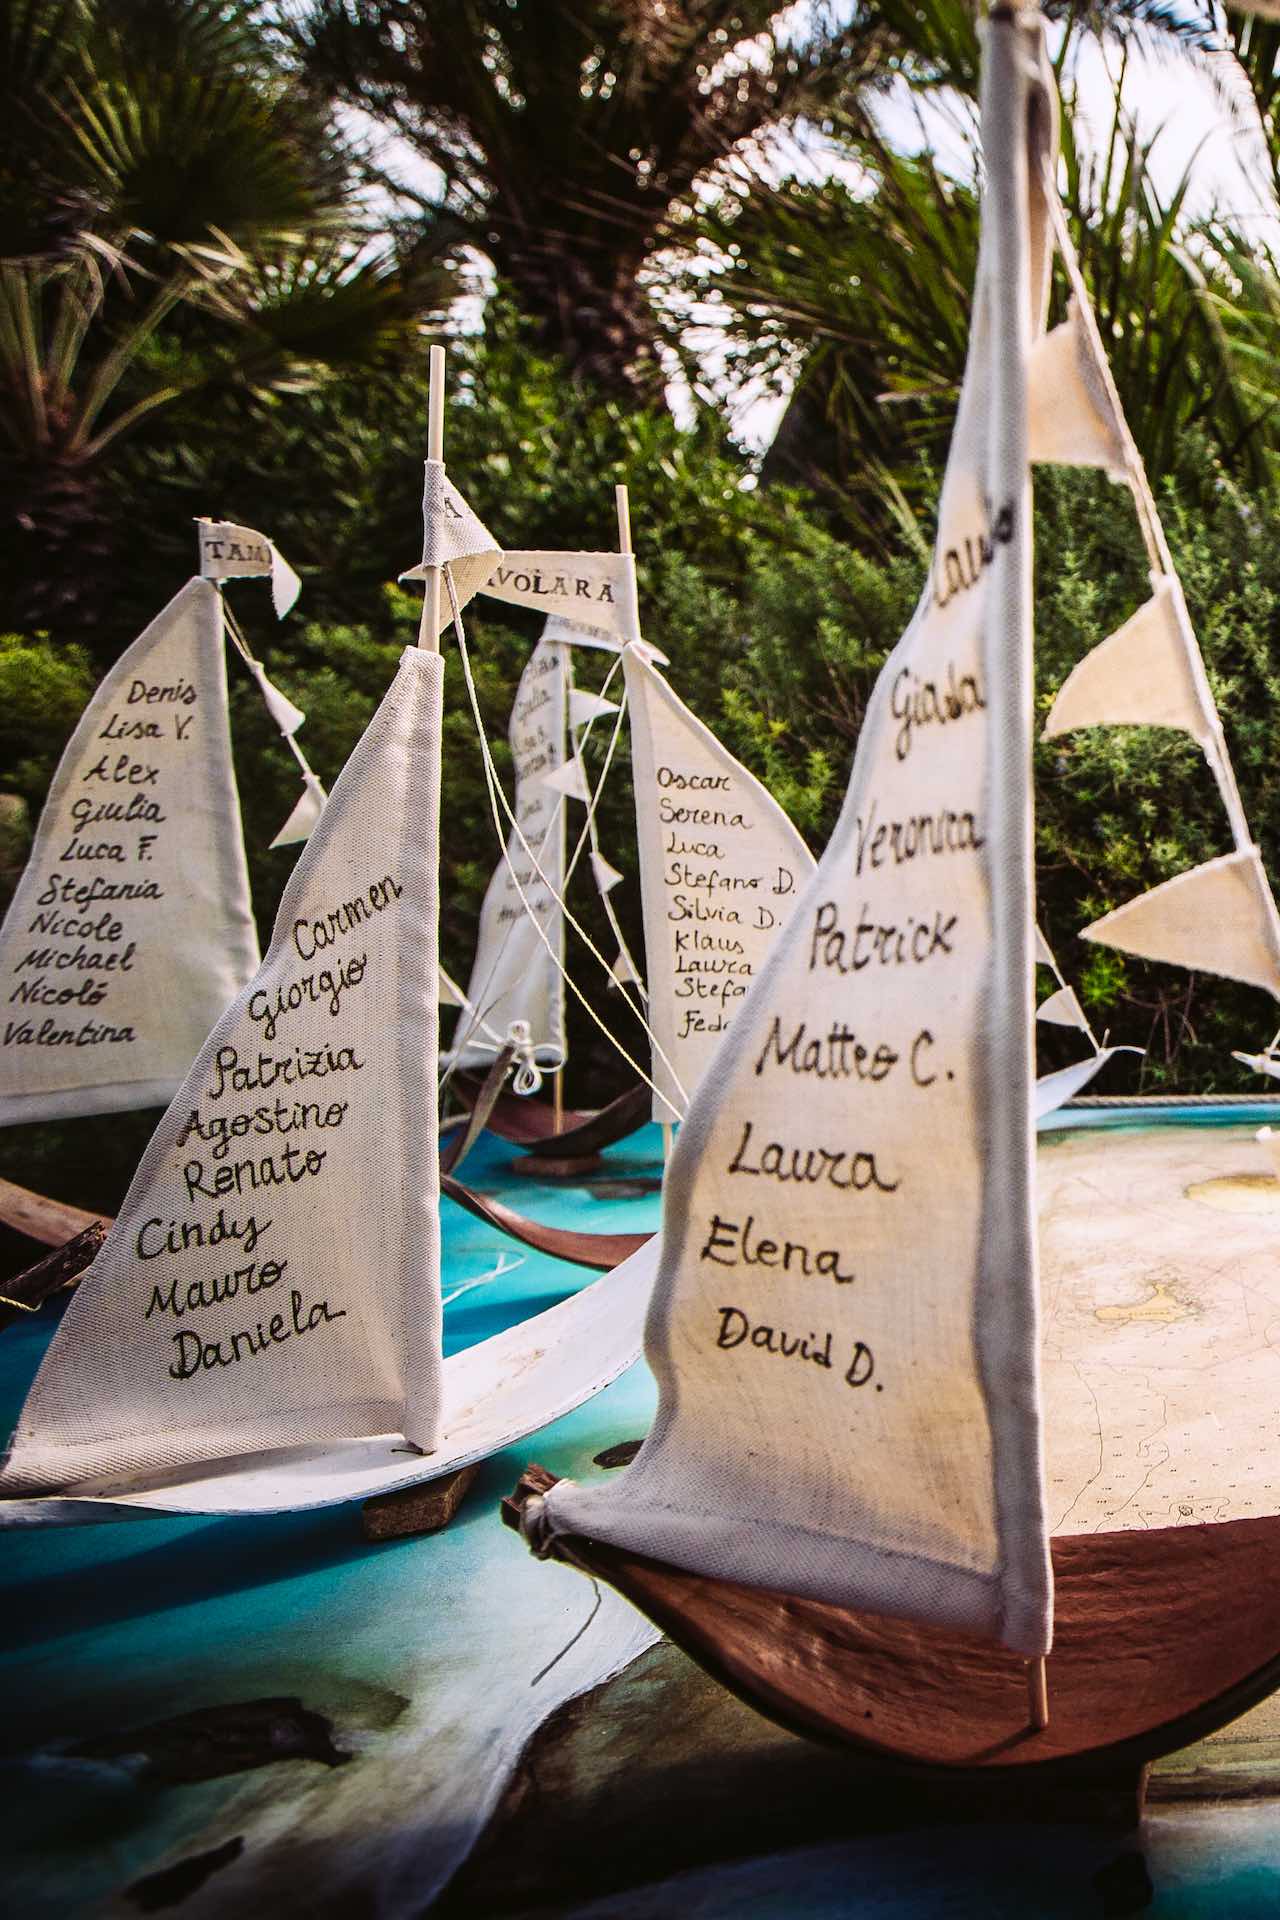 Denis
Lisa V.
Alex
Giulia
Luca F.
Stefania
Nicole
Michael
Nicoló
Valentina
Carmen
Giorgio
Patrizia
Agostino
Renato
Cindy
Mauro
Daniela
VOLARA
Oscar
Serena
Luca
Stefano D.
Silvia D.
Klaus
Laura
Giada
Veronica
Patrick
Matteo C.
Laura
Elena
David D.